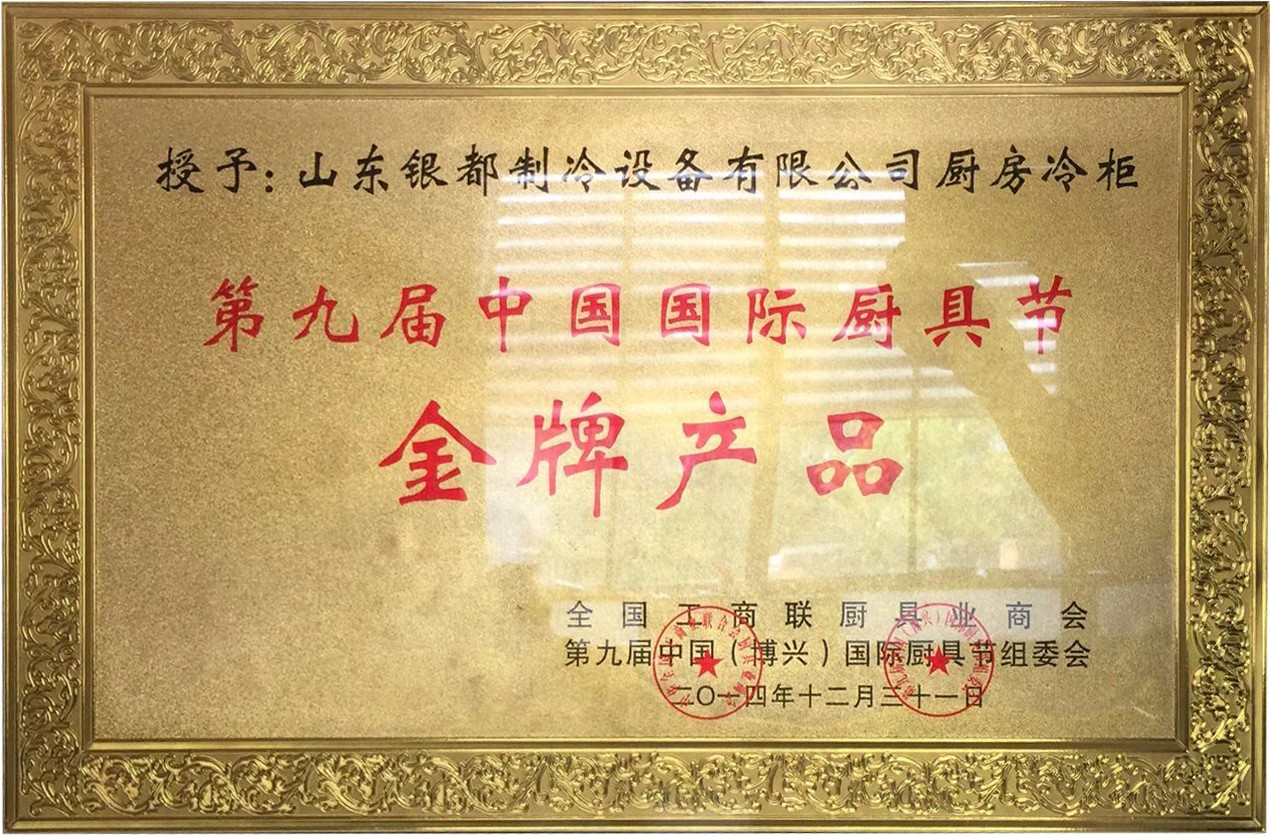 授予：山东银都制冷设备有限公司厨房冷柜
第九届中国国际厨具节
金牌产品
全国工商联厨具业商会
第九届中国（博兴）国际厨具节组委会
二〇一四年十二月三十一日